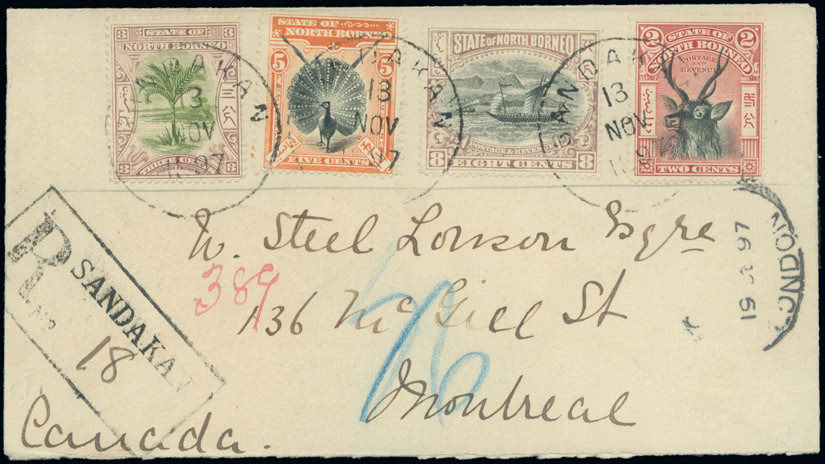 3 STATE OF 3
NORTH BORNEO
三 公
THREE CENTS
STATE OF
NORTH BORNEO
5 5
FIVE CENTS
STATE OF NORTH BORNEO
POSTAGE & REVENUE
8 EIGHT CENTS 8
2 STATE OF 2
NORTH BORNEO
POSTAGE
AND
REVENUE
TWO CENTS
SANDAKAN
13
NOV
97
SANDAKAN
13
NOV
97
SANDAKAN
13
NOV
R
SANDAKAN
No
18
389
W. Steel Lowson Esqre
136 McGill St
Montreal
Canada.
LONDON
19 97